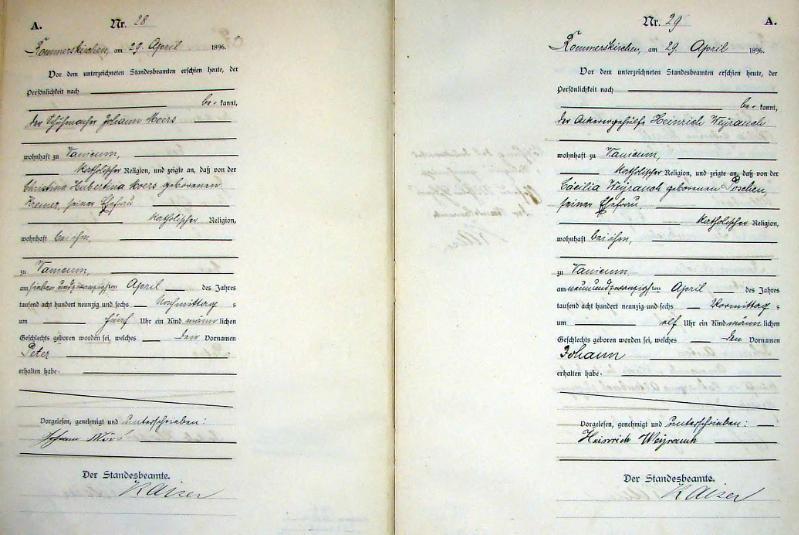 A. Nr. 28
Rommerskirchen, am 29. April 1896.
Vor dem unterzeichneten Standesbeamten erschien heute, der
Persönlichkeit nach
be- kannt,
der Schuhmacher Johann Moers
wohnhaft zu Vanicum,
katholischer Religion, und zeigte an, daß von der
Christina Hubertina Moers geborenen
Kremer, seiner Ehefrau
katholischer Religion,
wohnhaft bei ihm,
zu Vanicum,
am sieben und zwanzigsten April des Jahres
tausend acht hundert neunzig und sechs Nachmittag s
um fünf Uhr ein Kind männ lichen
Geschlechts geboren worden sei, welches den Vornamen
Peter
erhalten habe.
Vorgelesen, genehmigt und unterschrieben:
Johann Mörs
Der Standesbeamte.
Kaiser
Nr. 29 A.
Rommerskirchen, am 29 April 1896.
Vor dem unterzeichneten Standesbeamten erschien heute, der
Persönlichkeit nach
be- kannt,
der Ackergehülfe Heinrich Weyrauch
wohnhaft zu Vanicum,
katholischer Religion, und zeigte an, daß von der
Cäcilia Weyrauch geborenen Poschen,
seiner Ehefrau,
katholischer Religion,
wohnhaft bei ihm,
zu Vanicum,
am neunundzwanzigsten April des Jahres
tausend acht hundert neunzig und sechs Vormittag s
um elf Uhr ein Kind männ lichen
Geschlechts geboren worden sei, welches den Vornamen
Johann
erhalten habe.
Vorgelesen, genehmigt und unterschrieben:
Heinrich Weyrauch
Der Standesbeamte.
Kaiser